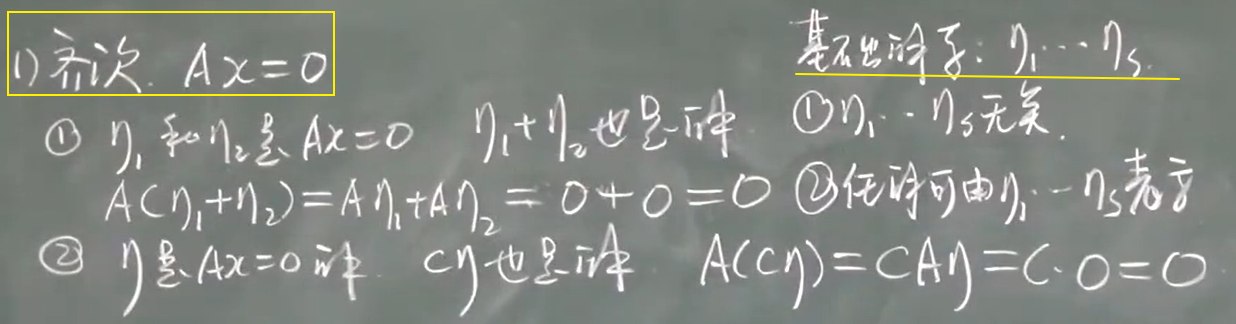 1) 齐次. Ax=0
① η₁和η₂是Ax=0 η₁+η₂也是解
A(η₁+η₂)=Aη₁+Aη₂=0+0=0
② η是Ax=0解. cη也是解 A(Cη)=CAη=C·0=0
基础解系: η₁…ηs.
① η₁…ηs无关.
② 任解可由η₁…ηs表示